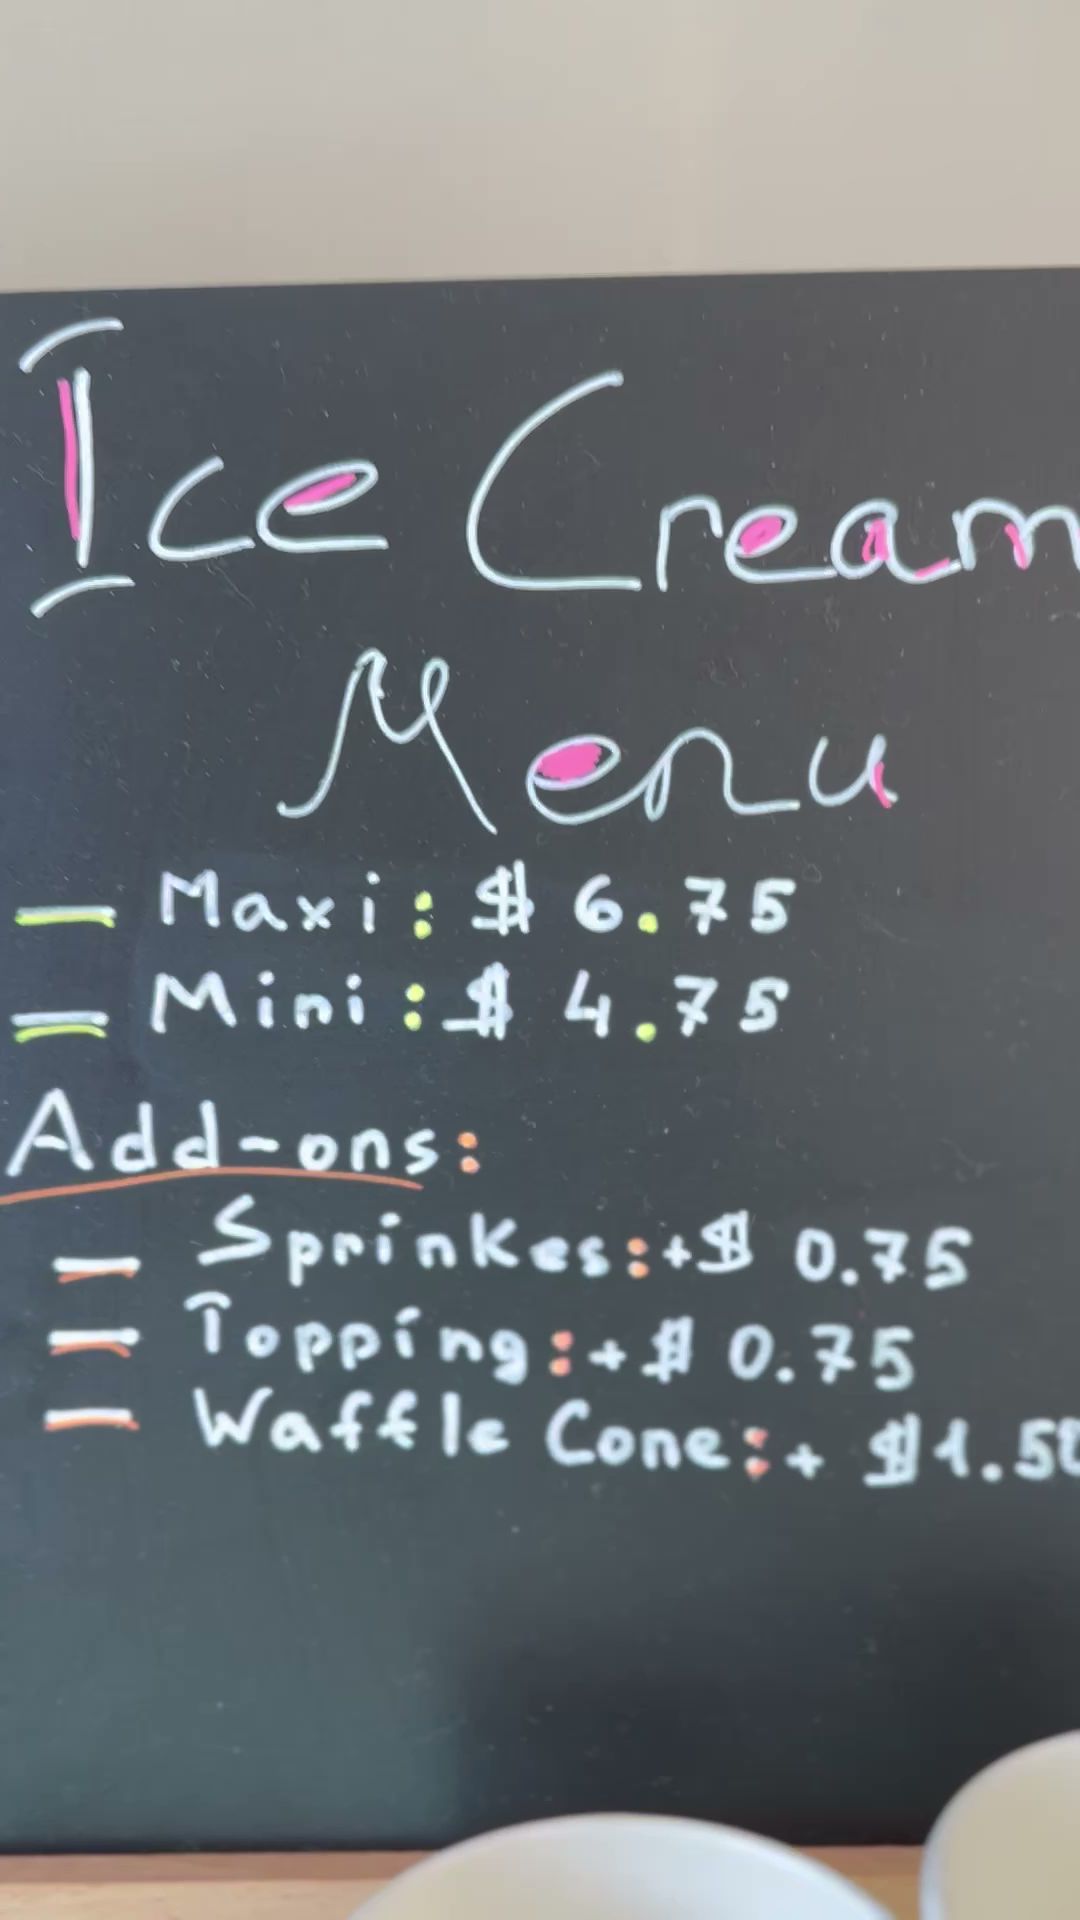 Ice Cream
Menu
— Maxi: $ 6.75
— Mini: $ 4.75
Add-ons:
— Sprinkes: +$ 0.75
— Topping: + $ 0.75
— Waffle Cone: + $1.50